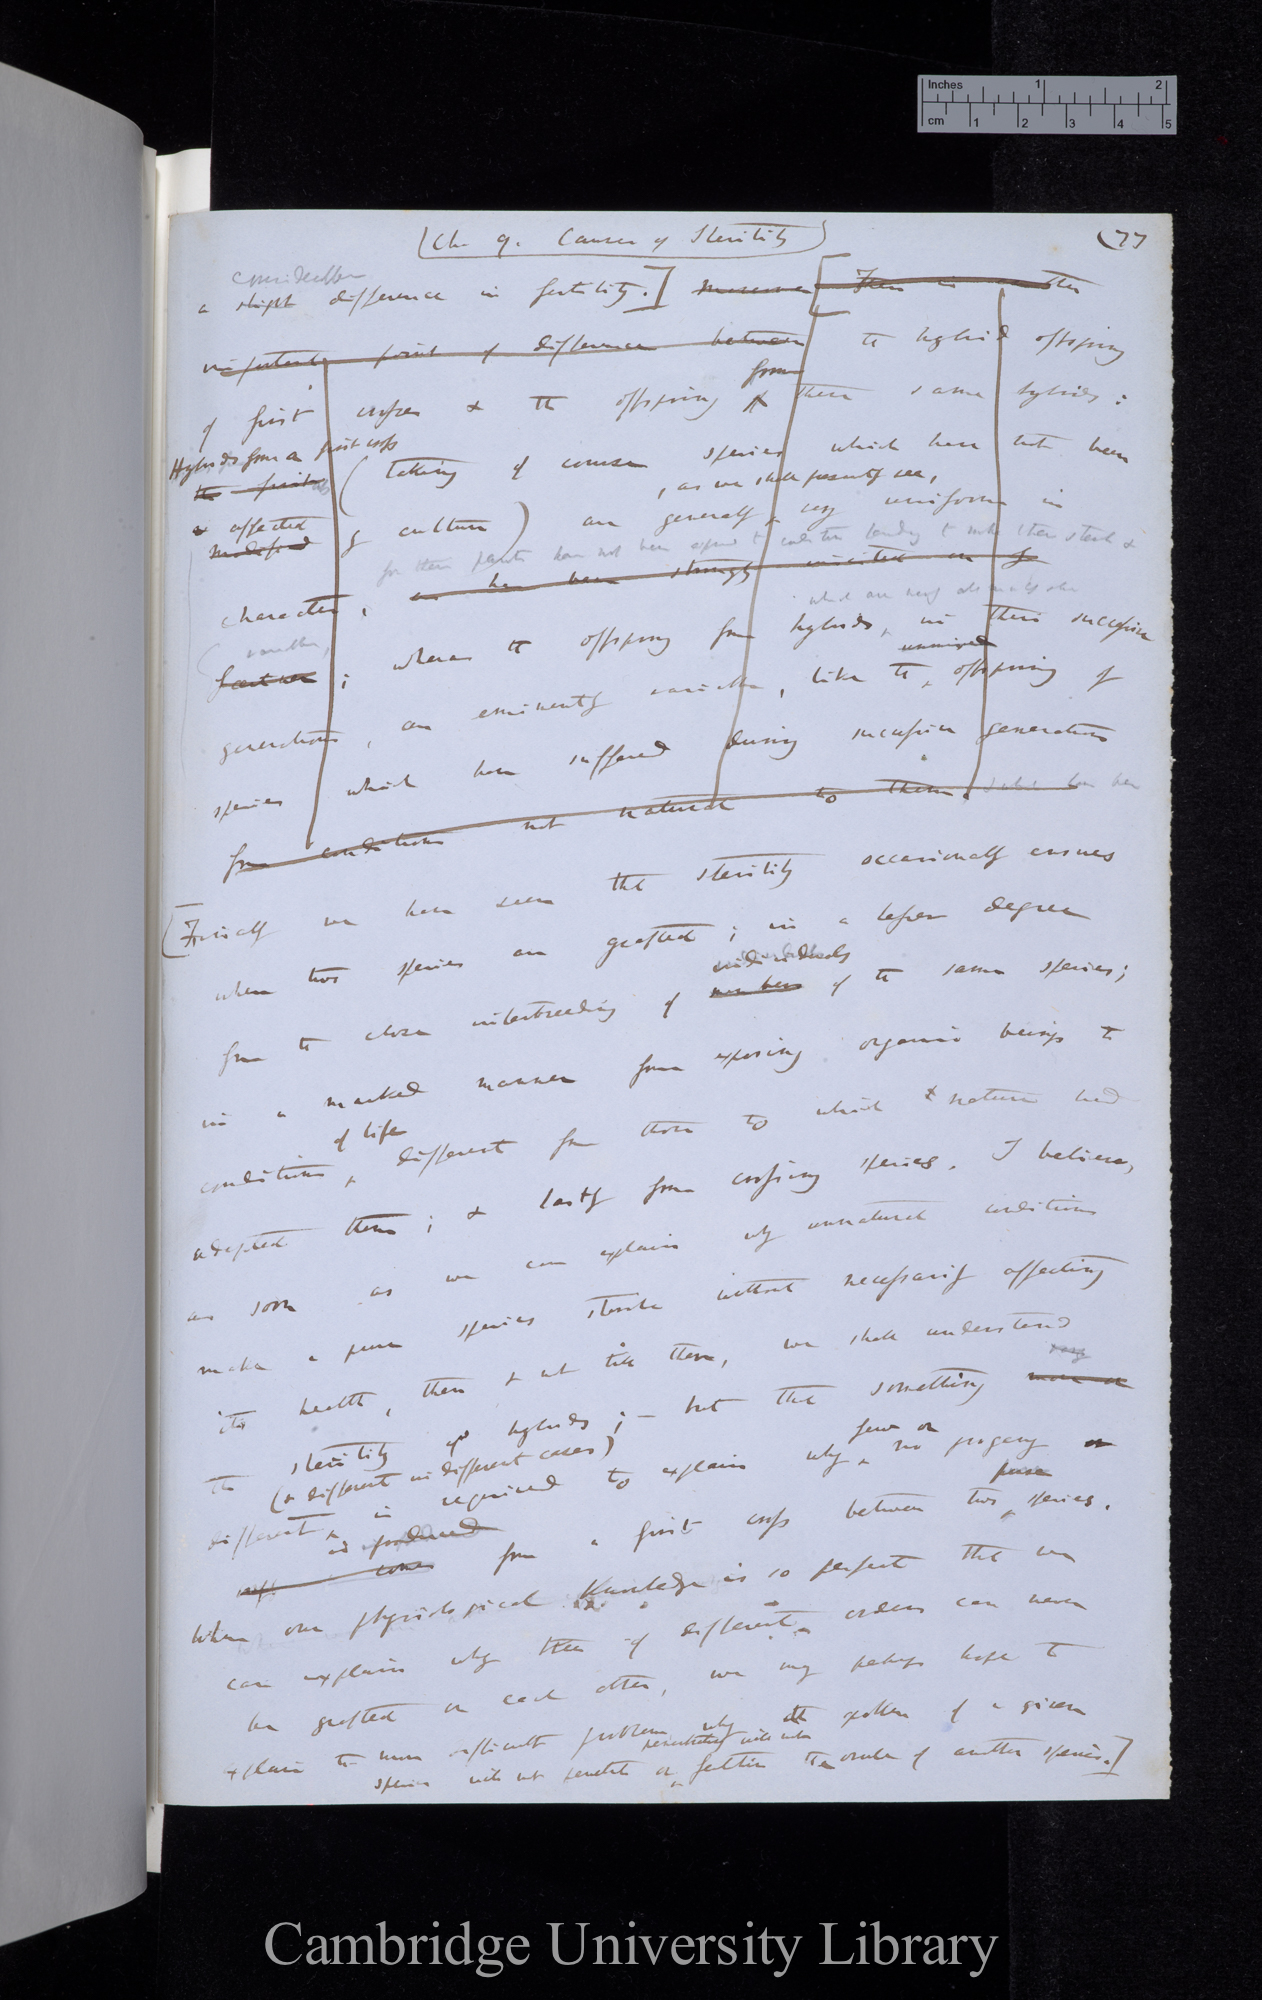 Inches 1 2
cm 1 2 3 4 5
(Ch. 9. Causes of Sterility)
(77
considerable
a slight difference in fertility.] Moreover [There is another
important point of difference between the hybrid offspring
from
of first crosses & the offspring these same hybrids:
Hybrids from a first cross
the first (taking of course species which have not been
, as we shall presently see,
affected
modified by culture) are generally very uniform in
for their parents have not been exposed to conditions tending to make them sterile &
character,
variable,
which are
; whereas the offspring from hybrids, in their successive
unmixed
generations, are eminently variable, like the offspring of
species which have suffered during successive generations
from conditions not natural to them.
[Finally we have seen that sterility occasionally ensues
when two species are grafted; in a lesser degree
individuals
from the close interbreeding of members of the same species;
in a marked manner from exposing organic beings to
of life
conditions different from those to which nature had
adapted them; & lastly from crossing species. I believe,
as soon as we can explain why unnatural conditions
make a pure species sterile without necessarily affecting
its health, then & not till then, we shall understand
very
the sterility of hybrids;— but that something
(& different in different cases)
few or
different is required to explain why no progeny
pure
is produced
comes from a first cross between two species.
When our physiological knowledge is so perfect that we
can explain why trees of different orders can never
be grafted on each other, we may perhaps hope to
explain the more difficult problem why the pollen of a given
penetrating will not
species will not penetrate or fertilise the ovules of another species.]
Cambridge University Library